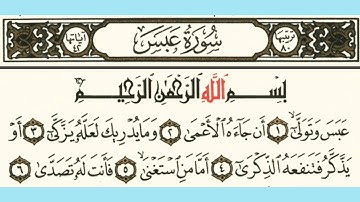 ترتيبها ٨٠ سُورَةُ عَبَسَ آياتها ٤٢
بِسْمِ اللَّهِ الرَّحْمَٰنِ الرَّحِيمِ
عَبَسَ وَتَوَلَّىٰ ١ أَن جَاءَهُ الْأَعْمَىٰ ٢ وَمَا يُدْرِيكَ لَعَلَّهُ يَزَّكَّىٰ ٣ أَوْ
يَذَّكَّرُ فَتَنفَعَهُ الذِّكْرَىٰ ٤ أَمَّا مَنِ اسْتَغْنَىٰ ٥ فَأَنتَ لَهُ تَصَدَّىٰ ٦